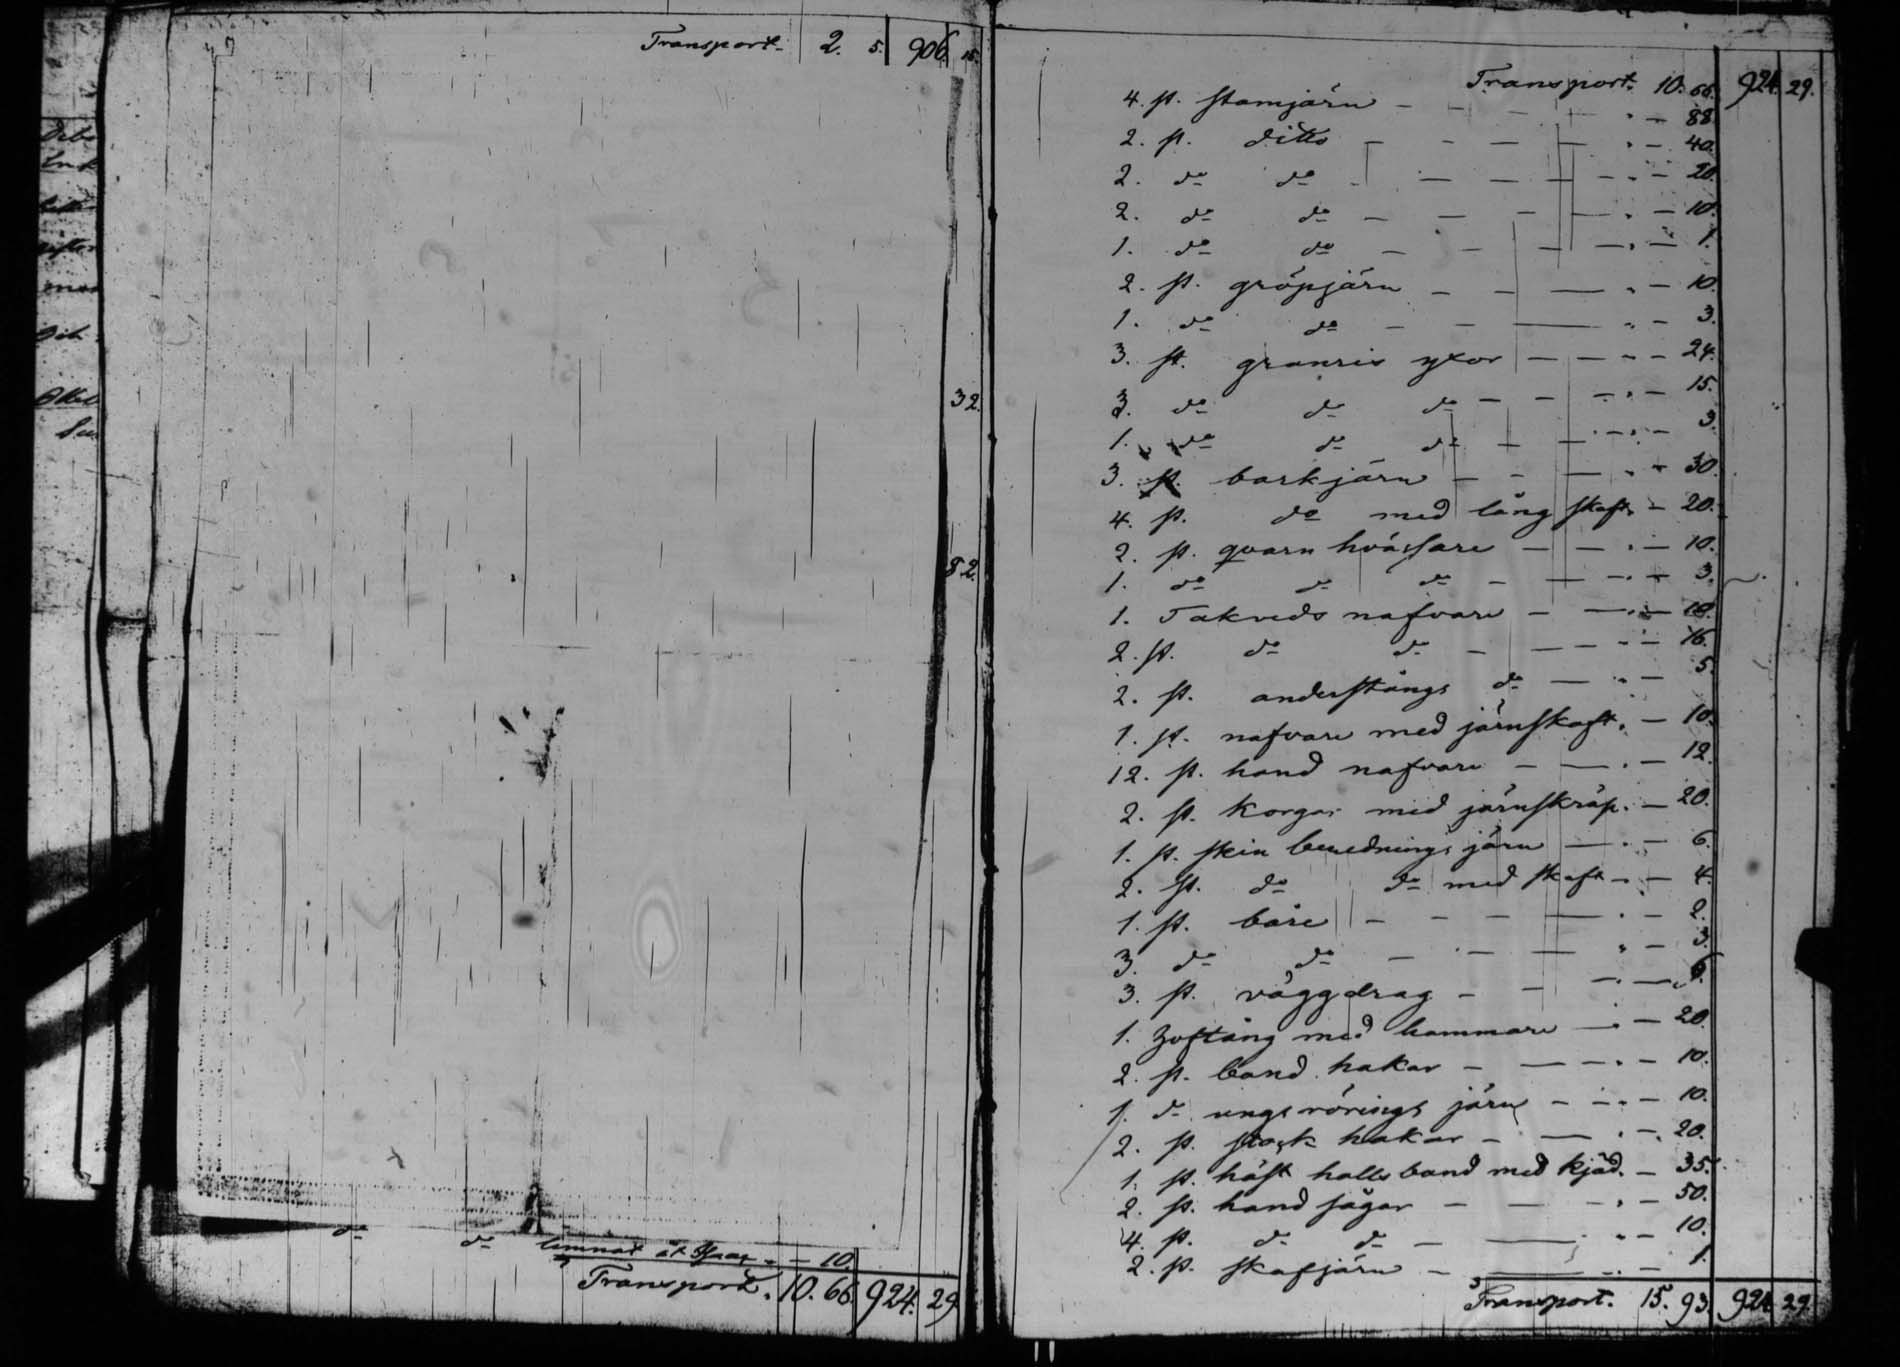 Transport. 2. 5. 906. 15.
32.
82.
do do lemnat åt Isaac - - 10.
Transport. 10. 66. 924. 29.
Transport. 10. 66. 924. 29.
4. st. stamjärn - - - - 88.
2. st. ditto - - - - 40.
2. do do - - - - 20.
2. do do - - - - 10.
1. do do - - - - 1.
2. st. gröpjärn - - - - 10.
1. do do - - - - 3.
3. st. granris yxor - - - - 24.
3. do do do - - - - 15.
1. do do do - - - - 3.
3. st. barkjärn - - - - 30.
4. st. do med lång skaft. - 20.
2. st. qvarn hvässare - - - - 10.
1. do do do - - - - 3.
1. Takveds nafvare - - - - 10.
2. st. do do - - - - 16.
2. st. anderstångs do - - - 5.
1. st. nafvare med järnskaft. - 10.
12. st. hand nafvare - - - 12.
2. st. korgar med järnskräp. - 20.
1. st. skin berednings järn - - - 6.
2. st. do do med skaft - - 4.
1. st. båre - - - - 2.
3. do do - - - - 3.
3. st. väggdrag - - - - 6.
1. Hoftång med hammare - - 20.
2. st. band hakar - - - - 10.
1. do ungsrörings järn - - - 10.
2. st. stock hakar - - - 20.
1. st. häst halls band med kjäd. - 35.
2. st. hand sågar - - - - 50.
4. st. do do - - - - 10.
2. st. skafjärn - - - - 1.
Transport. 15. 93. 924. 29.